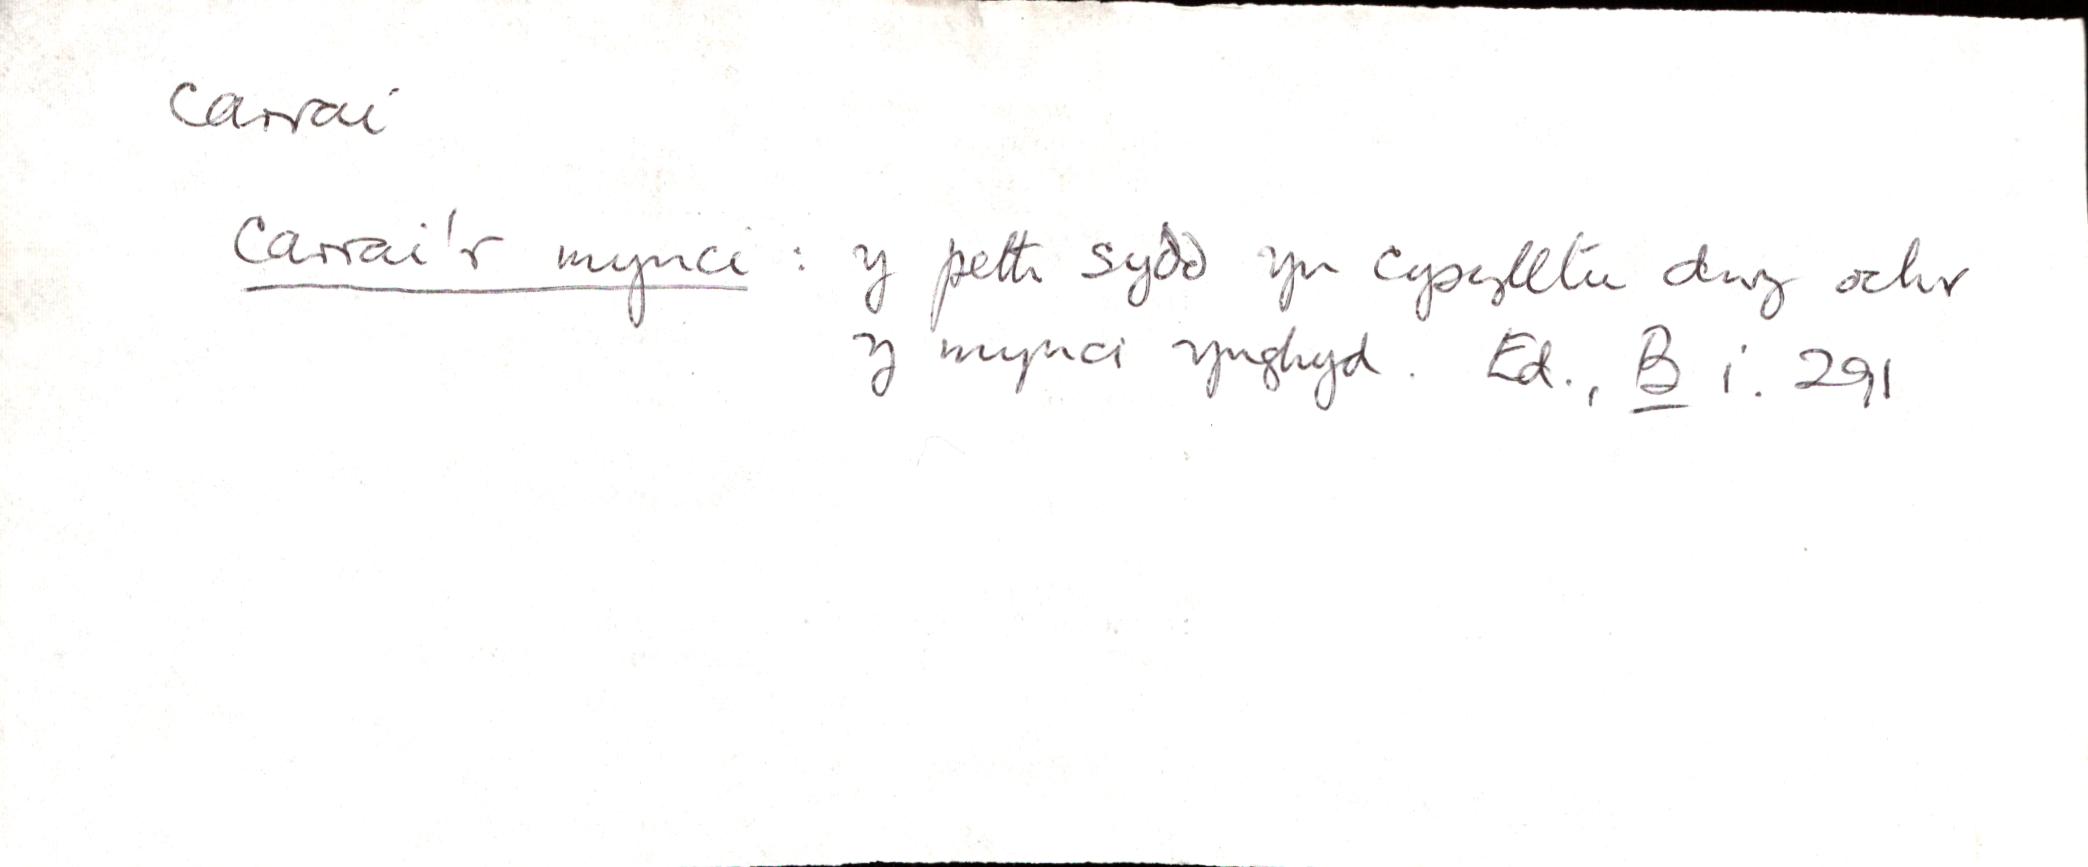 Carrai
Carrai'r mynci : y peth sydd yn cysylltu dwy ochr
y mynci ynghyd. Ed., B i. 291